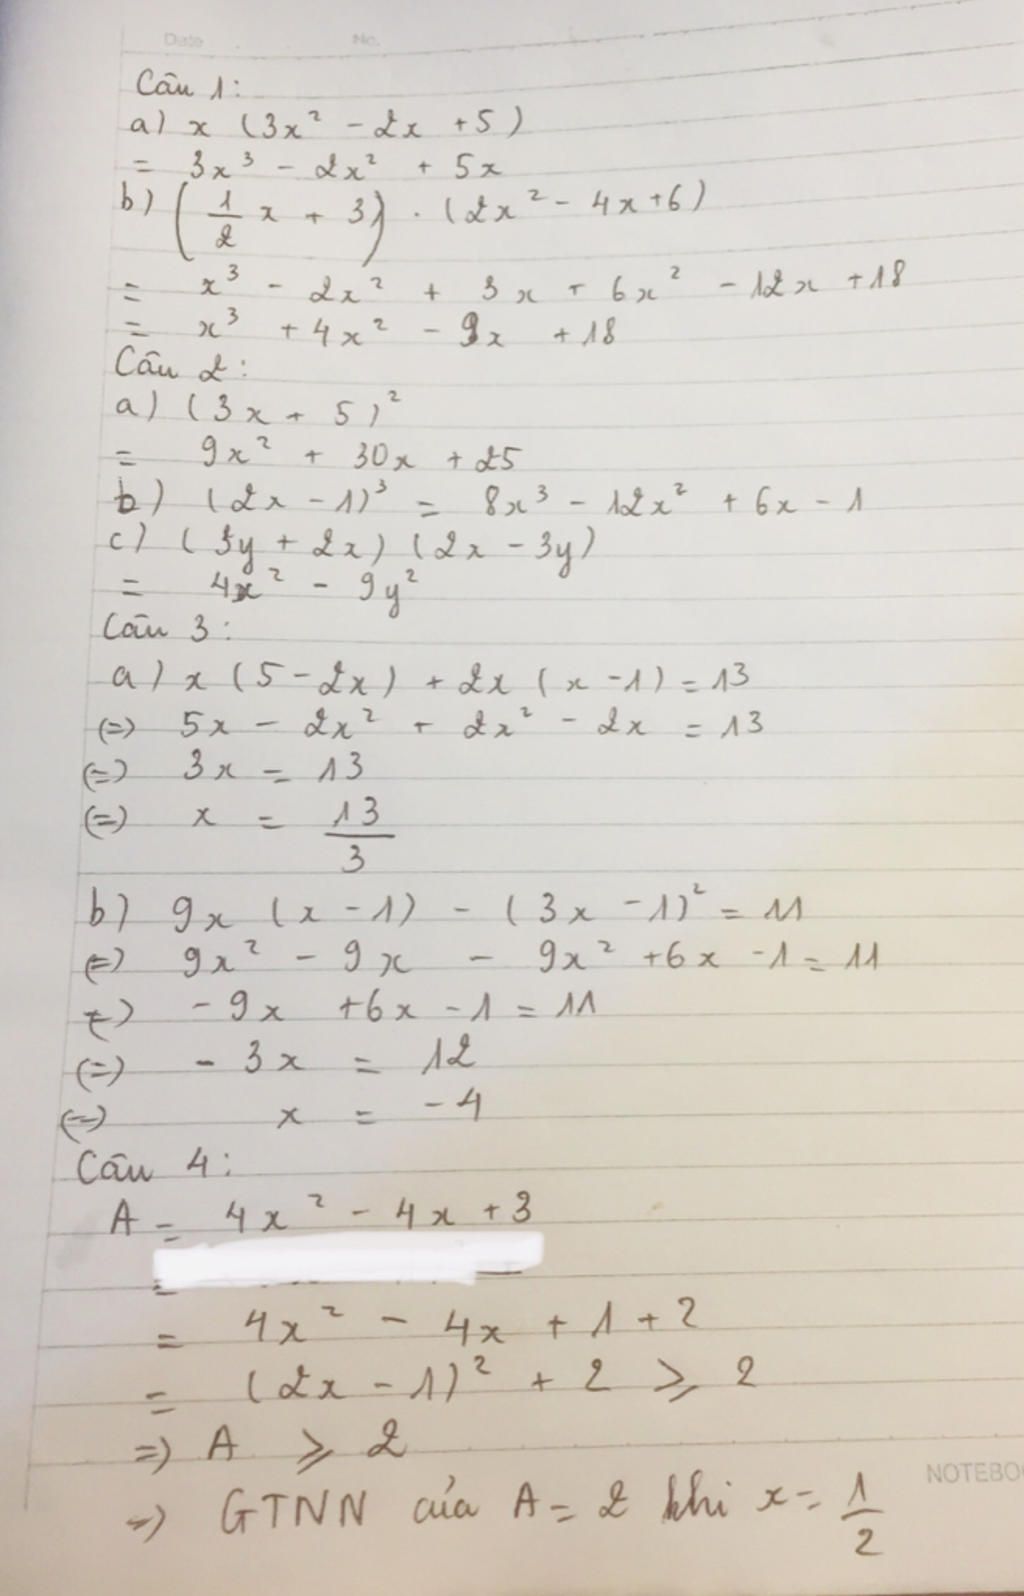 Date No.
Câu 1:
a) x (3x² - 2x + 5)
= 3x³ - 2x² + 5x
b) (1/2 x + 3) . (2x² - 4x + 6)
= x³ - 2x² + 3x + 6x² - 12x + 18
= x³ + 4x² - 9x + 18
Câu 2:
a) (3x + 5)²
= 9x² + 30x + 25
b) (2x - 1)³ = 8x³ - 12x² + 6x - 1
c) (3y + 2x) (2x - 3y)
= 4x² - 9y²
Câu 3:
a) x (5 - 2x) + 2x (x - 1) = 13
(=) 5x - 2x² + 2x² - 2x = 13
(=) 3x = 13
(=) x = 13/3
b) 9x (x - 1) - (3x - 1)² = 11
(=) 9x² - 9x - 9x² + 6x - 1 = 11
(=) - 9x + 6x - 1 = 11
(=) - 3x = 12
(=) x = - 4
Câu 4:
A = 4x² - 4x + 3
= 4x² - 4x + 1 + 2
= (2x - 1)² + 2 ⩾ 2
=) A ⩾ 2
=) GTNN của A = 2 khi x = 1/2
NOTEBO